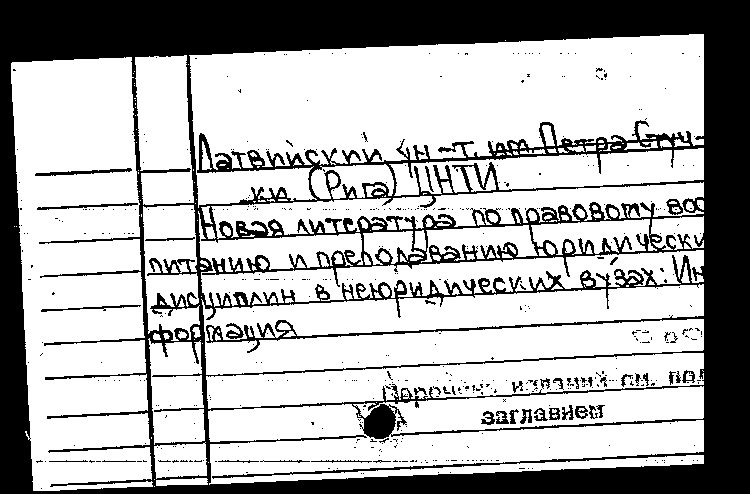 Латвийский ун-т. им. Петра Стуч-
ки (Рига) ЦНТИ.
Новая литература по правовому вос
питанию и преподаванию юридически
дисциплин в неюридических вузах: Ин
формация
изданий см. под
заглавием